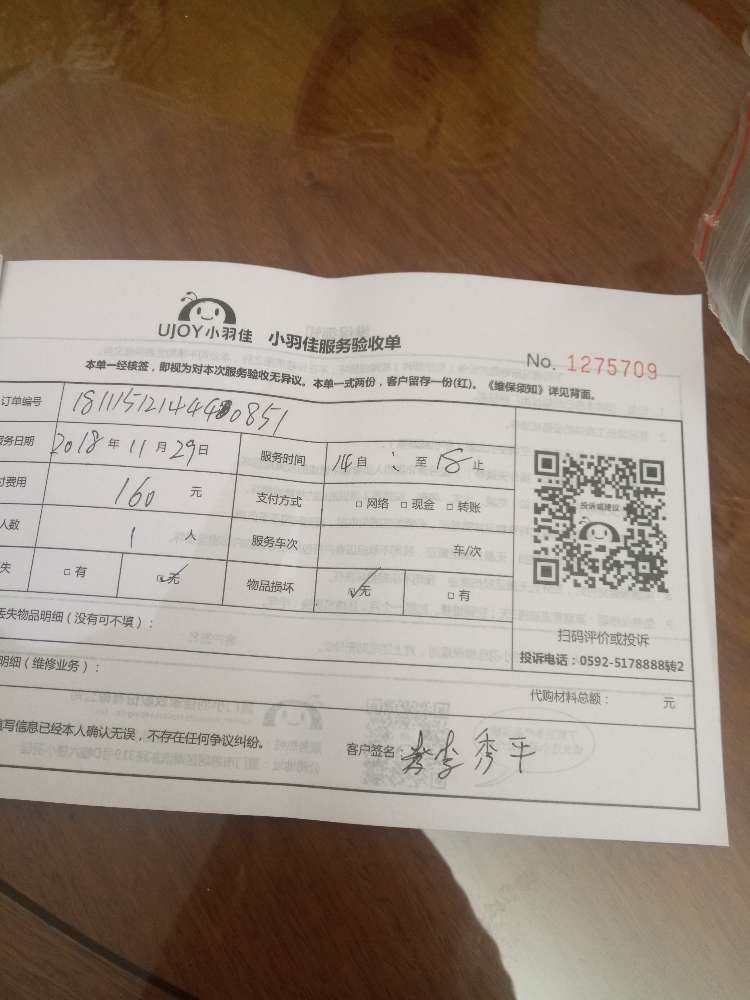 UJOY小羽佳 小羽佳服务验收单
No. 1275709
本单一经核签，即视为对本次服务验收无异议。本单一式两份，客户留存一份(红)。《维保须知》详见背面。
订单编号
服务日期 2018 年 11 月 29 日 服务时间 14 自 : 至 18 止
付费用 160 元 支付方式 □ 网络 □ 现金 □ 转账
人数 1 人 服务车次 车/次
失 □ 有 ☑ 无 物品损坏 ☑ 无 □ 有
投诉或建议
扫码评价或投诉
投诉电话：0592-5178888转2
丢失物品明细（没有可不填）：
明细（维修业务）：
代购材料总额： 元
填写信息已经本人确认无误，不存在任何争议纠纷。
客户签名 李秀平